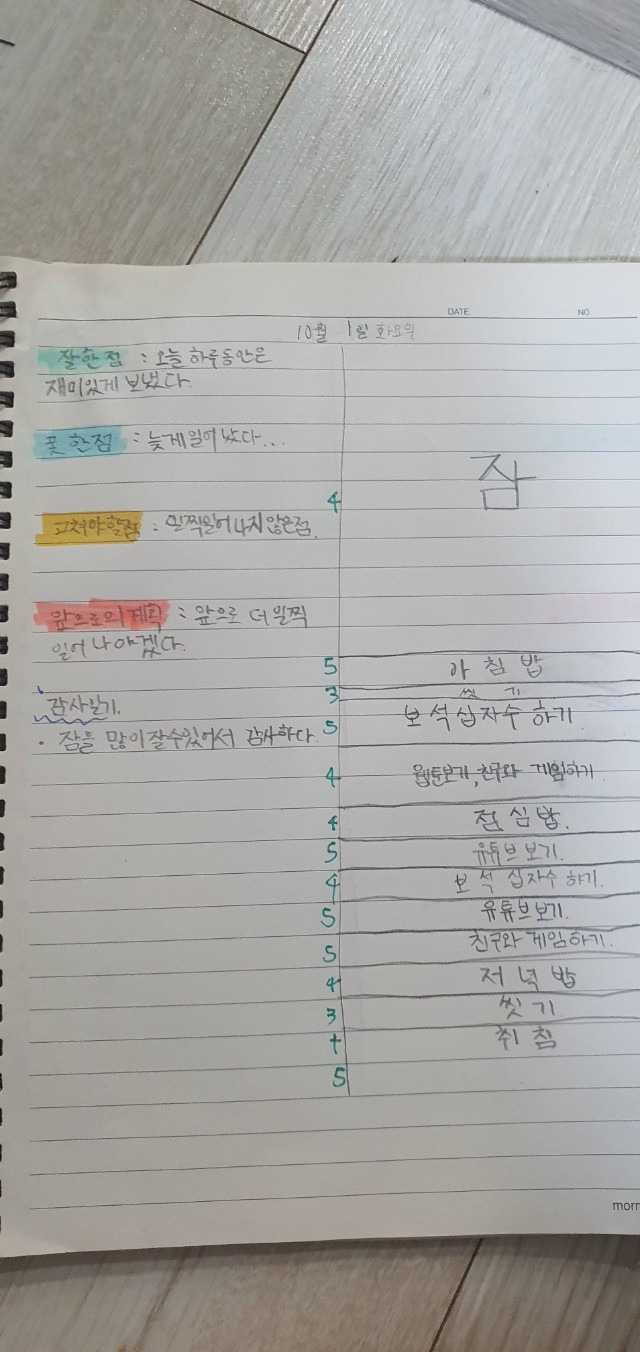 DATE. NO.
10월 1일 화요일
잘한점 : 오늘 하루동안은
재미있게 보냈다.
못한점 : 늦게일어났다...
잠
4
고쳐야할점 : 일찍일어나지않은점.
앞으로의계획 : 앞으로 더 일찍
일어나야겠다.
5 아침밥
3 씻기
감사일기.
5 보석십자수하기
· 잠을 많이잘수있어서 감사하다.
4 웹툰보기, 친구와 게임하기
4 점심밥.
5 유튜브보기.
4 보석 십자수 하기.
5 유튜브보기.
5 친구와 게임하기.
4 저녁밥
3 씻기
취침
5